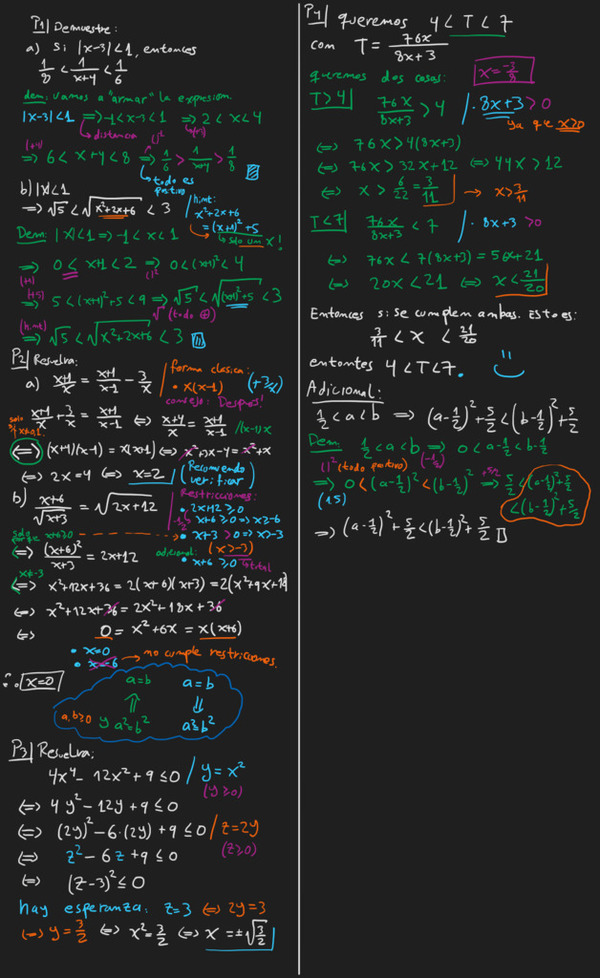 P1| Demuestre:
a) Si |x-3|<1, entonces
1/8 < 1/(x+4) < 1/6
dem: Vamos a "armar" la expresión.
|x-3|<1 ⇒ -1<x-3<1 ⇒ 2<x<4
distancia ()⁻¹ (+3)
(+4) ⇒ 6 < x+4 < 8 ⇒ 1/6 > 1/(x+4) > 1/8
todo es positivo
b) |x|<1
⇒ √5 < √(x²+2x+6) < 3
hint: x²+2x+6 = (x+1)²+5
solo un x!
Dem: |x|<1 ⇒ -1 < x < 1
⇒ 0 ≤ x+1 < 2 ⇒ 0 < (x+1)² < 4
(+1) ()²
(+5) ⇒ 5 < (x+1)²+5 < 9 ⇒ √5 < √((x+1)²+5) < 3
√ (todo ⊕)
(hint) ⇒ √5 < √(x²+2x+6) < 3
P2| Resuelva:
a) (x+1)/x = (x+1)/(x-1) - 3/x
forma clasica:
• x(x-1) (+3/x)
consejo: Despues!
(x+1)/x + 3/x = (x+1)/(x-1) ⇔ (x+4)/x = (x+1)/(x-1) /·(x-1)x
⇔ (x+4)(x-1) = x(x+1) ⇔ x²+3x-4 = x²+x
⇔ 2x=4 ⇔ x=2 (Recomiendo verificar)
b) (x+6)/√(x+3) = √(2x+12)
Restricciones:
• 2x+12 ≥ 0
x+6 ≥ 0 ⇒ x ≥ -6
• x+3 > 0 ⇒ x > -3
solo porque x+6≥0
⇔ (x+6)²/(x+3) = 2x+12
adicional: (x>-3)
• x+6 ≥ 0 total
x≠-3
⇔ x²+12x+36 = 2(x+6)(x+3) = 2(x²+9x+18)
⇔ x²+12x+36 = 2x²+18x+36
⇔ 0 = x²+6x = x(x+6)
• x=0
• x=-6 → no cumple restricciones.
∴ x=0
a=b a=b
⇑ ⇓
a,b≥0 y a²=b² a²=b²
P3| Resuelva:
4x⁴ - 12x² + 9 ≤ 0 / y = x²
(y ≥ 0)
⇔ 4y² - 12y + 9 ≤ 0
⇔ (2y)² - 6·(2y) + 9 ≤ 0 / z=2y
⇔ z² - 6z + 9 ≤ 0 (z≥0)
⇔ (z-3)² ≤ 0
hay esperanza: z=3 ⇔ 2y=3
⇔ y = 3/2 ⇔ x² = 3/2 ⇔ x = ±√(3/2)
P4| queremos 4 < T < 7
con T = 76x/(8x+3)
queremos dos cosas: x = -3/8
T>4| 76x/(8x+3) > 4 / ·8x+3 > 0
ya que x>0
⇔ 76x > 4(8x+3)
⇔ 76x > 32x+12 ⇔ 44x > 12
⇔ x > 6/22 = 3/11 → x > 3/11
T<7| 76x/(8x+3) < 7 / ·8x+3 > 0
⇔ 76x < 7(8x+3) = 56x+21
⇔ 20x < 21 ⇔ x < 21/20
Entonces si se cumplen ambas. Esto es:
3/11 < x < 21/20
entontes 4 < T < 7.
Adicional:
1/2 < a < b ⇒ (a-1/2)² + 5/2 < (b-1/2)² + 5/2
Dem: 1/2 < a < b ⇒ 0 < a-1/2 < b-1/2
()² (todo positivo) (-1/2)
⇒ 0 < (a-1/2)² < (b-1/2)² ⇒ 5/2 < (a-1/2)²+5/2
+5/2
< (b-1/2)²+5/2
⇒ (a-1/2)² + 5/2 < (b-1/2)² + 5/2